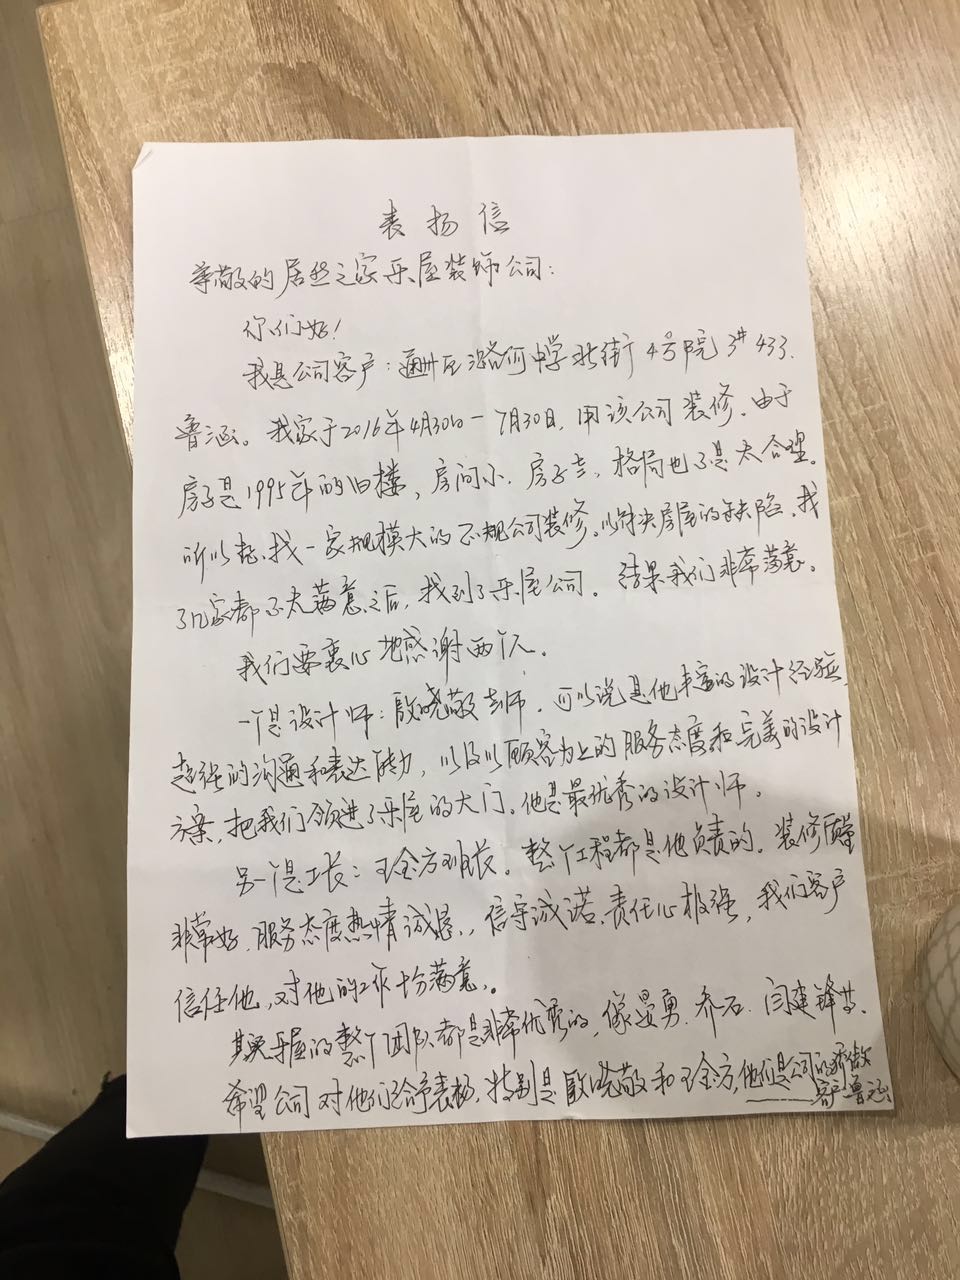 表扬信
尊敬的居然之家乐屋装饰公司：
你们好！
我是公司客户：通州区潞河中学北街4号院3#433.
鲁涵。我家于2016年4月30日一7月30日，用该公司装修。由于
房子是1995年的旧楼，房间小、房子老，格局也不是太合理。
所以想找一家规模大的正规公司装修。以解决房屋的缺陷。找
了几家都不太满意之后，找到了乐屋公司。结果我们非常满意。
我们要衷心地感谢两个人。
一个是设计师：殷晓敬老师。可以说是他丰富的设计经验、
超强的沟通和表达能力，以及以顾客为上的服务态度和完美的设计
方案，把我们领进了乐屋的大门。他是最优秀的设计师。
另一个是工长：王金方班长。整个工程都是他负责的。装修质量
非常好、服务态度热情诚恳、信守诚诺、责任心极强，我们客户
信任他，对他的工作十分满意。
其实乐屋的整个团队都是非常优秀的，像晏勇、乔石、闫建锋等。
希望公司对他们给予表扬，特别是殷晓敬和王金方，他们是公司的骄傲
客户鲁涵